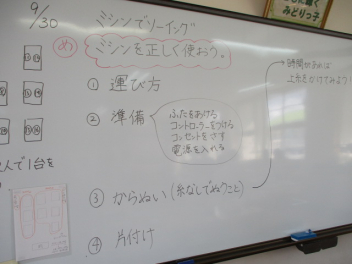 みどりっ子
9/30
ミシンでソーイング
め ミシンを正しく使おう。
① 運び方
② 準備
ふたをあける
コントローラーをつける
コンセントをさす
電源を入れる
③ からぬい(糸なしでぬうこと)
④ 片付け
時間があれば
上糸をかけてみよう!
人で1台を